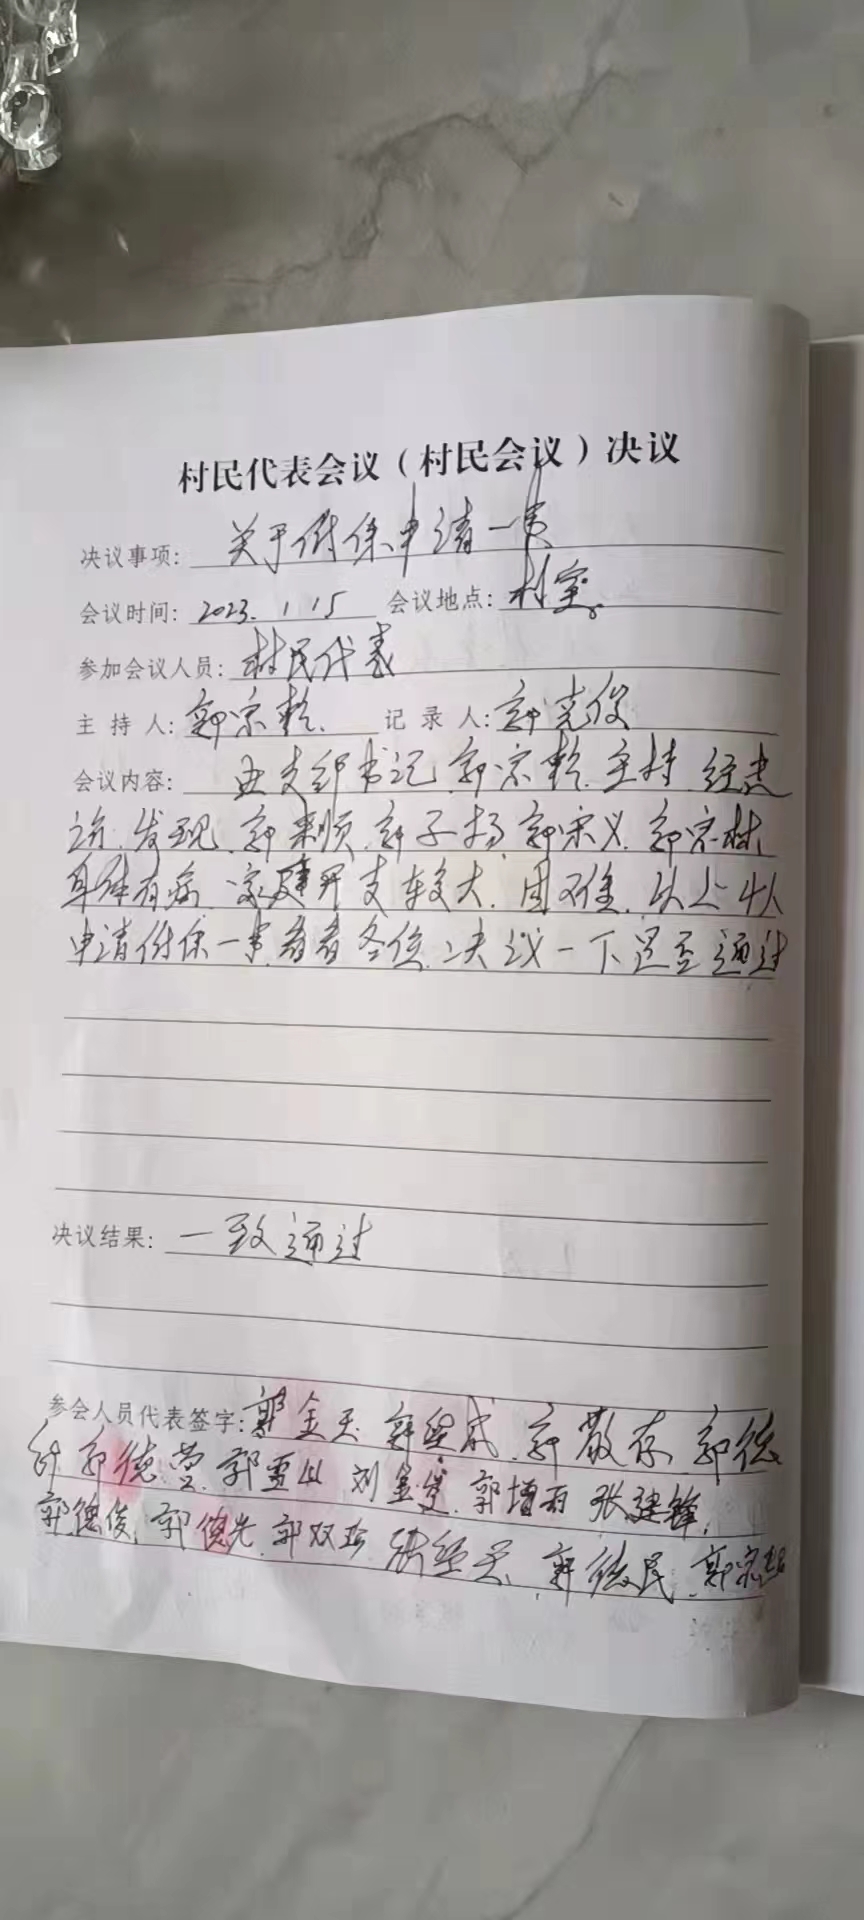 村民代表会议（村民会议）决议
决议事项: 关于低保申请一事
会议时间: 2023.1.15 会议地点: 村室。
参加会议人员: 村民代表
主持人: 郭宗乾. 记录人: 郭克俊
会议内容: 由支部书记.郭宗乾.主持.经走
访.发现.郭来顺.郭子扬.郭宗义.郭宗林.
身体有病.家庭开支较大.困难.以上4人
申请低保一事.看看各位.决议一下是否通过
决议结果: 一致通过
参会人员代表签字: 郭金玉. 郭 成. 郭敬存. 郭德
郭德莹. 郭雪 刘金 . 郭增 张建锋.
郭德俊. 郭德光. 郭双珍 张 . 郭德民. 郭宗